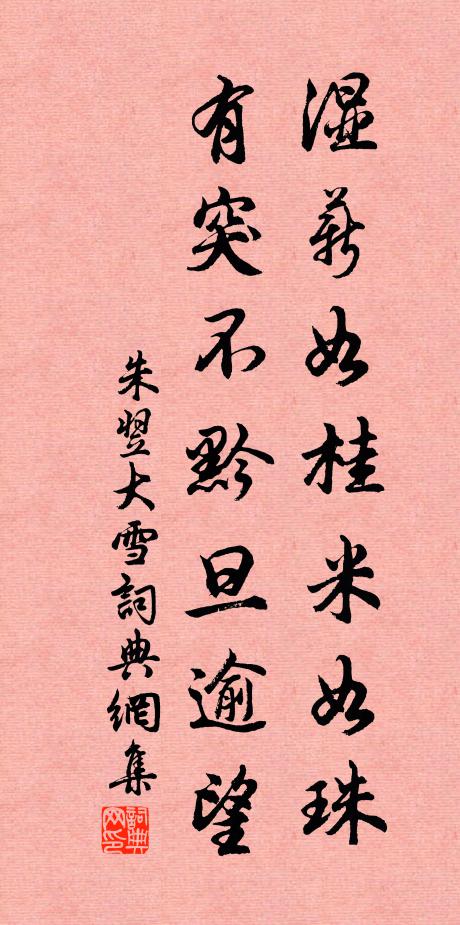 濕薪如桂米如珠
有突不黔旦逾望
朱翌大雪詞典網集
詞典网印